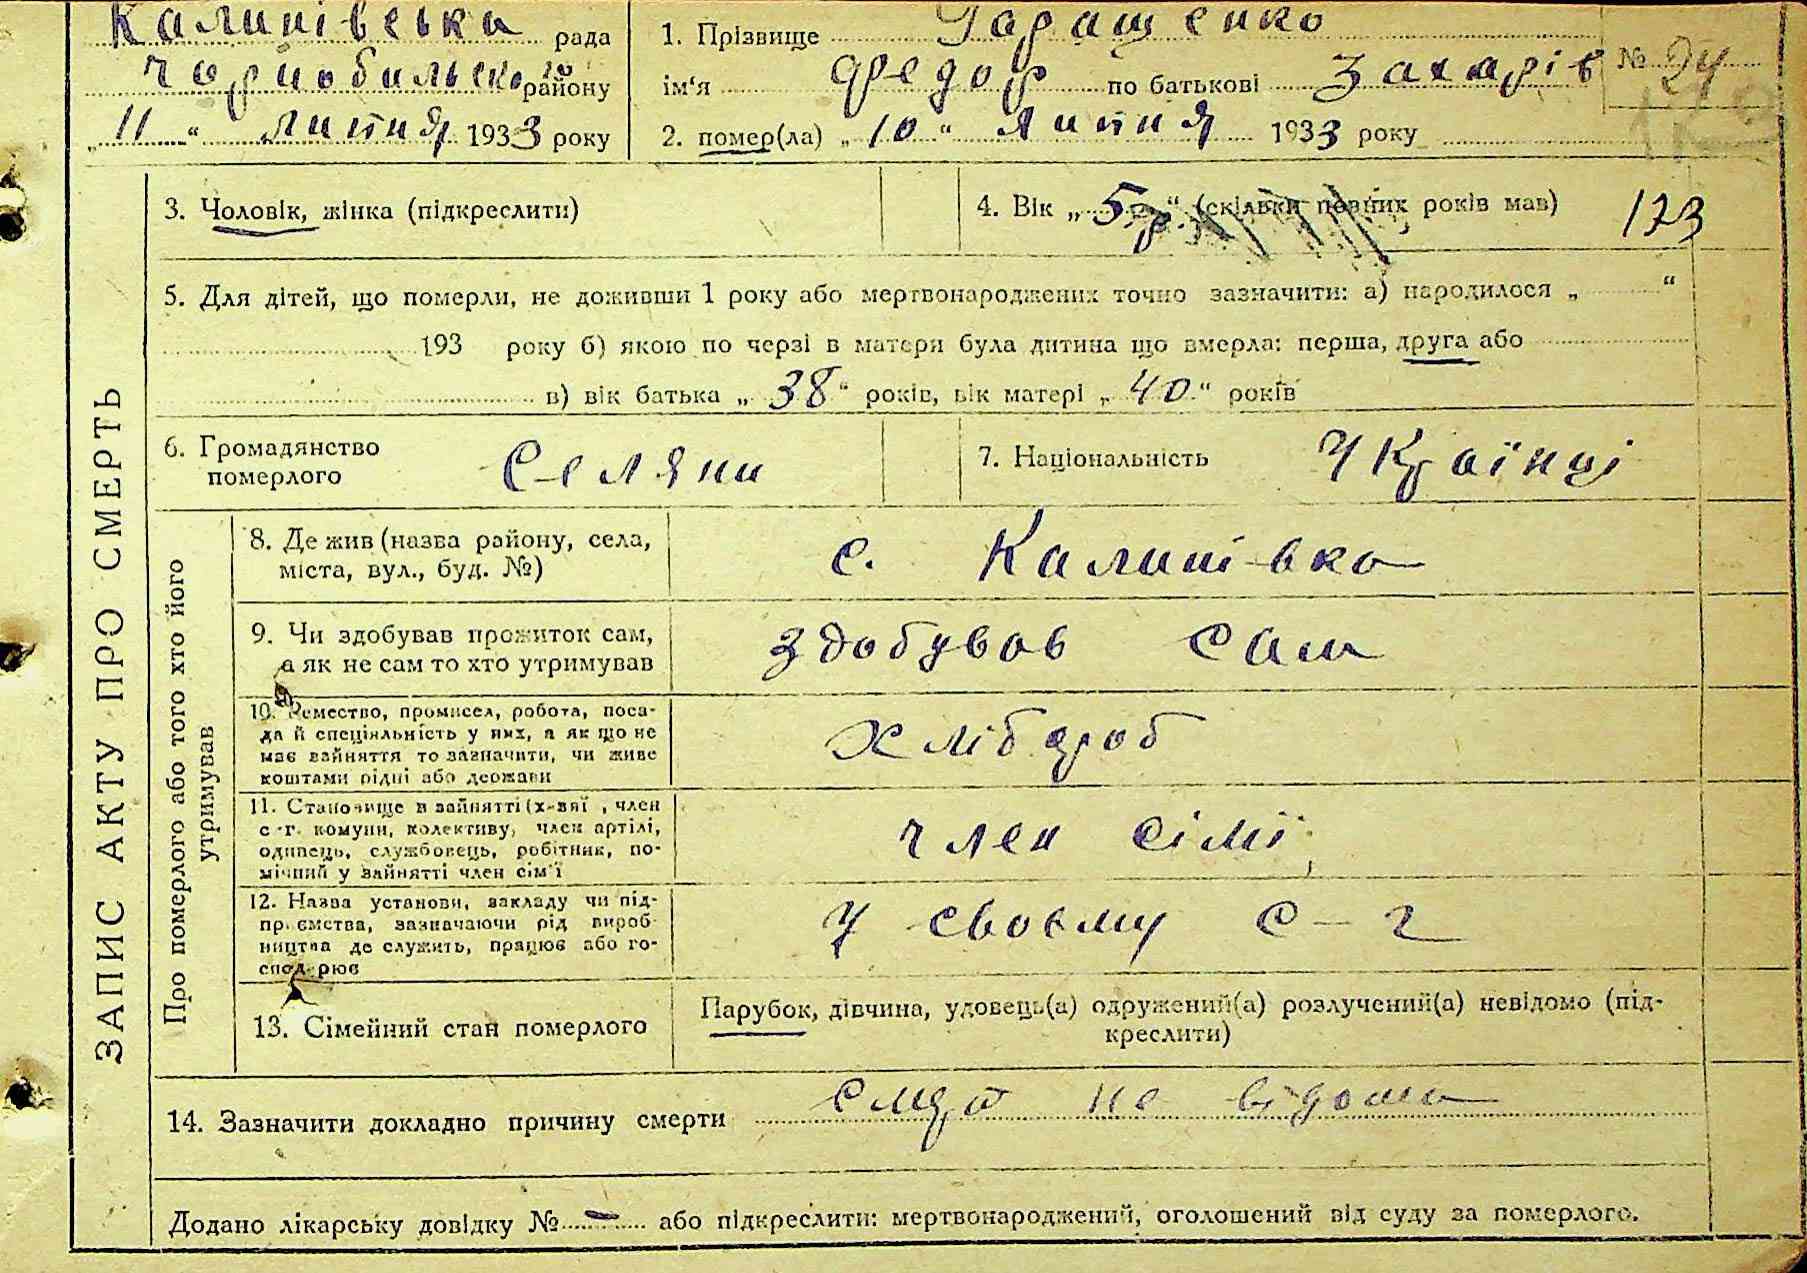 Калинівська рада
Чорнобильського району
„ 11 “ липня 1933 року
1. Прізвище Гаращенко
ім‘я Федор по батькові Захарів
№ 24
2. помер(ла) „ 10 “ липня 1933 року
3. Чоловік, жінка (підкреслити)
4. Вік „ 5 р. “ (скільки повних років мав)
123
5. Для дітей, що померли, не доживши 1 року або мертвонароджених точно зазначити: а) народилося „ “
193 року б) якою по черзі в матери була дитина що вмерла: перша, друга або
в) вік батька „ 38 “ років, вік матері „ 40 “ років
6. Громадянство
померлого
Селяни
7. Національність Українці
ЗАПИС АКТУ ПРО СМЕРТЬ
Про померлого або того хто його
утримував
8. Де жив (назва району, села,
міста, вул., буд. №)
с. Калинівка
9. Чи здобував прожиток сам,
а як не сам то хто утримував
здобував сам
10. Ремество, промисел, робота, поса-
да й спеціяльність у них, а як що не
має зайняття то зазначити, чи живе
коштами рідні або держави
хлібороб
11. Становище в зайнятті (х-вяї , член
с-г. комуни, колективу, член артілі,
одинець, службовець, робітник, по-
мічний у зайнятті член сім'ї
член сімї
12. Назва установи, закладу чи під-
приємства, зазначаючи рід вироб-
ництва де служить, працює або го-
сподарює
У своєму с-г
13. Сімейний стан померлого
Парубок, дівчина, удовець(а) одружений(а) розлучений(а) невідомо (під-
креслити)
14. Зазначити докладно причину смерти не відома
Додано лікарську довідку № – або підкреслити: мертвонароджений, оголошений від суду за померлого.